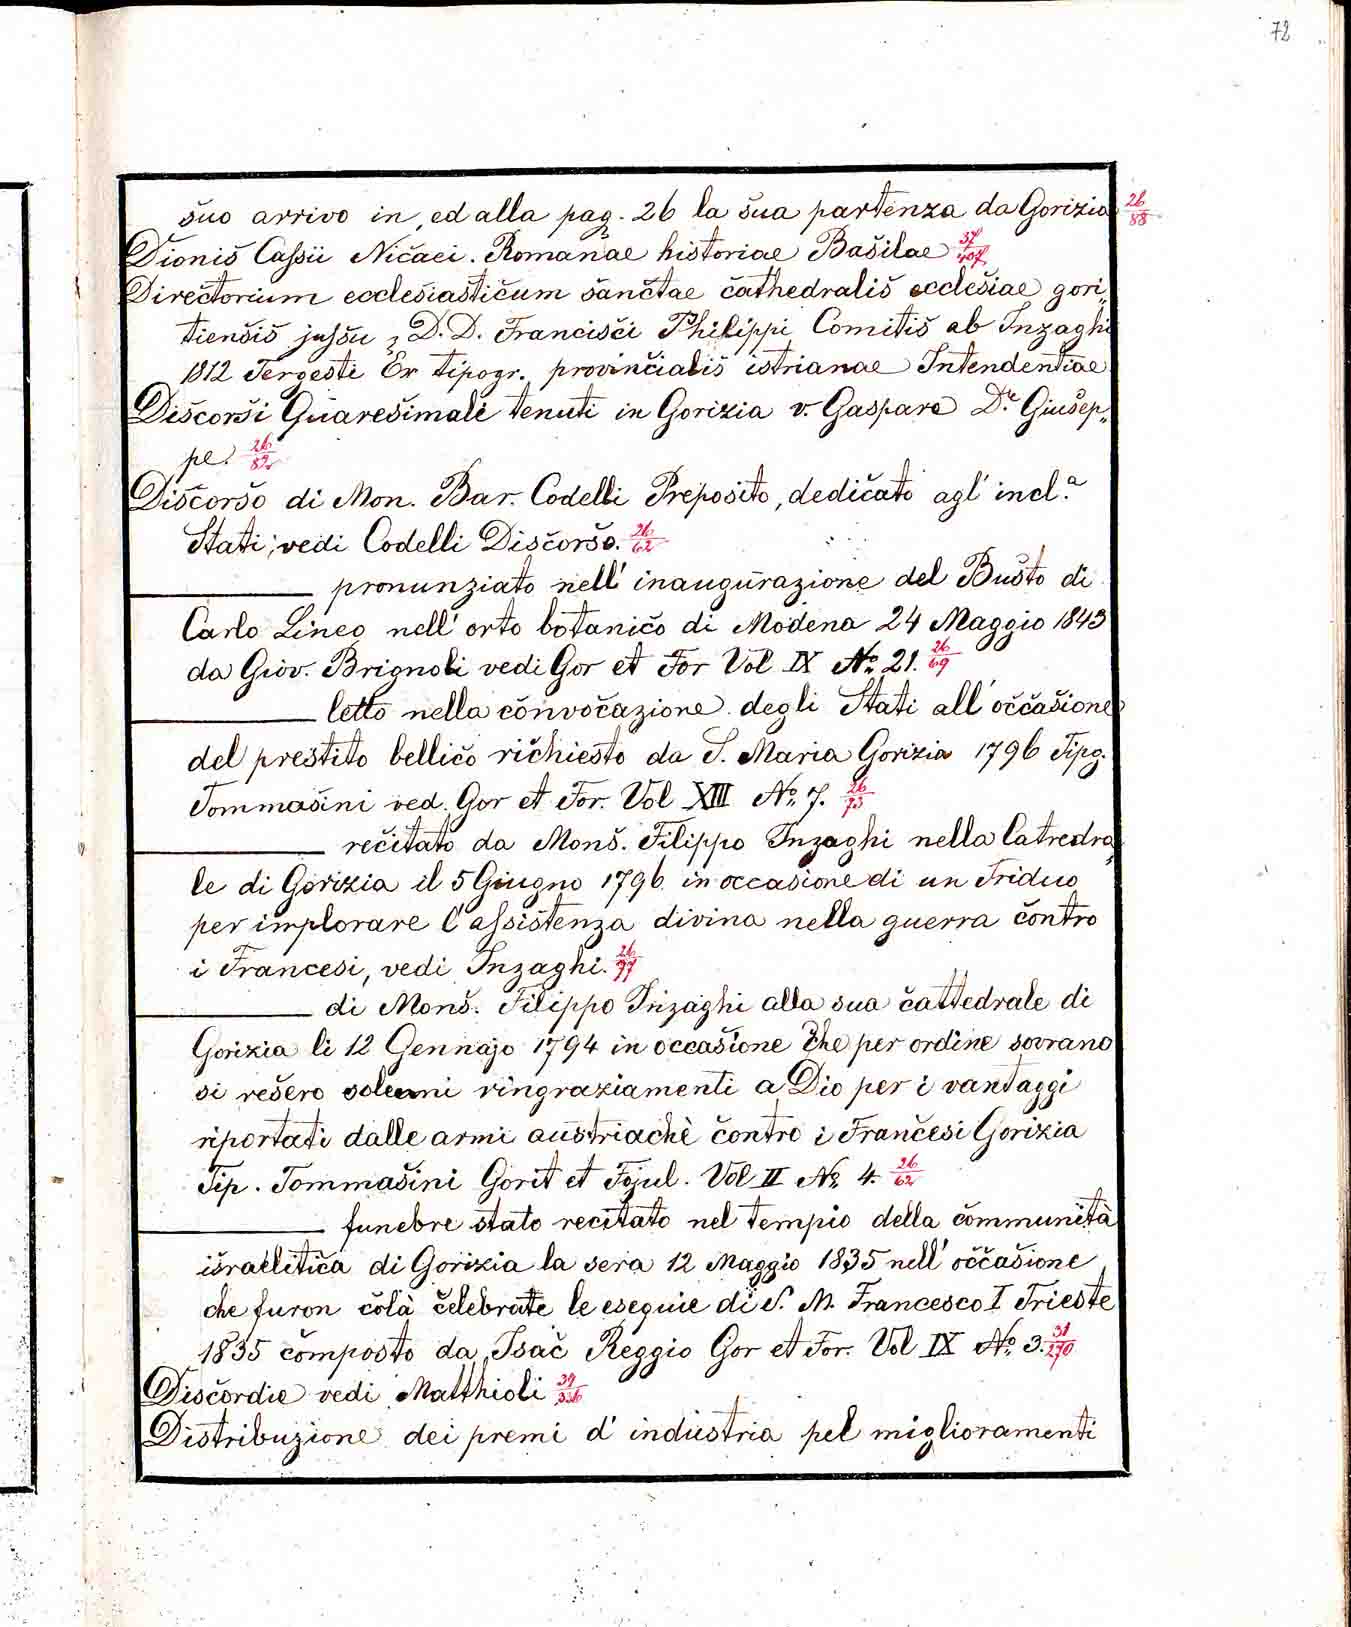 72
suo arrivo in, ed alla pag. 26 la sua partenza da Gorizia 26/88
Dionis Cassii Nicaei. Romanae historiae Basilae 37/407
Directorium ecclesiasticum sanctae cathedralis ecclesiae gori„
tiensis jussu, D. D. Francisci Philippi Comitis ab Inzaghi
1812 Tergesti Ex tipogr. provincialis istrianae Intendentiae
Discorsi Quaresimali tenuti in Gorizia v. Gasparo Dr. Giusep„
pe. 26/82
Discorso di Mon. Bar. Codelli Preposito, dedicato agl' incl.a
Stati; vedi Codelli Discorso. 26/62
______ pronunziato nell' inaugurazione del Busto di
Carlo Lineo nell' orto botanico di Modena 24 Maggio 1843
da Giov. Brignoli vedi Gor et For Vol IX No. 21. 26/69
______ letto nella convocazione degli Stati all' occasione
del prestito bellico richiesto da S. Maria Gorizia 1796 Tipg.
Tommasini ved. Gor et For. Vol XIII No. 7. 26/73
______ recitato da Mons. Filippo Inzaghi nella Catredra„
le di Gorizia il 5 Giugno 1796 in occasione di un Triduo
per implorare l' assistenza divina nella guerra contro
i Francesi, vedi Inzaghi. 26/77
______ di Mons. Filippo Inzaghi alla sua cattedrale di
Gorizia li 12 Gennajo 1794 in occasione che per ordine sovrano
si resero solenni ringraziamenti a Dio per i vantaggi
riportati dalle armi austriachè contro i Francesi Gorizia
Tip. Tommasini Gorit et Fojul. Vol II No. 4. 26/62
______ funebre stato recitato nel tempio della communità
israelitica di Gorizia la sera 12 Maggio 1835 nell' occasione
che furon colà celebrate le esequie di S. M. Francesco I Trieste
1835 composto da Isac Reggio Gor et For. Vol IX No. 3. 31/270
Discordie vedi Matthioli
Distribuzione dei premi d' industria pel miglioramenti